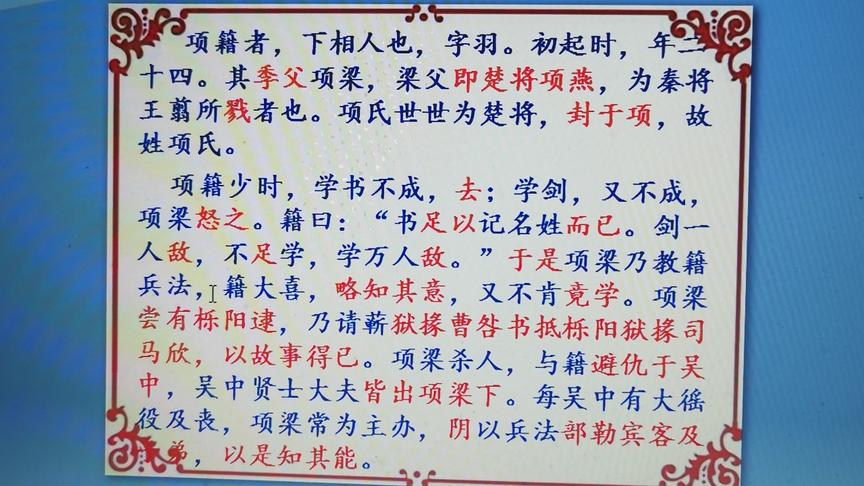 项籍者，下相人也，字羽。初起时，年二
十四。其季父项梁，梁父即楚将项燕，为秦将
王翦所戮者也。项氏世世为楚将，封于项，故
姓项氏。
项籍少时，学书不成，去；学剑，又不成，
项梁怒之。籍曰：“书足以记名姓而已。剑一
人敌，不足学，学万人敌。”于是项梁乃教籍
兵法，籍大喜，略知其意，又不肯竟学。项梁
尝有栎阳逮，乃请蕲狱掾曹咎书抵栎阳狱掾司
马欣，以故事得已。项梁杀人，与籍避仇于吴
中，吴中贤士大夫皆出项梁下。每吴中有大徭
役及丧，项梁常为主办，阴以兵法部勒宾客及
弟，以是知其能。